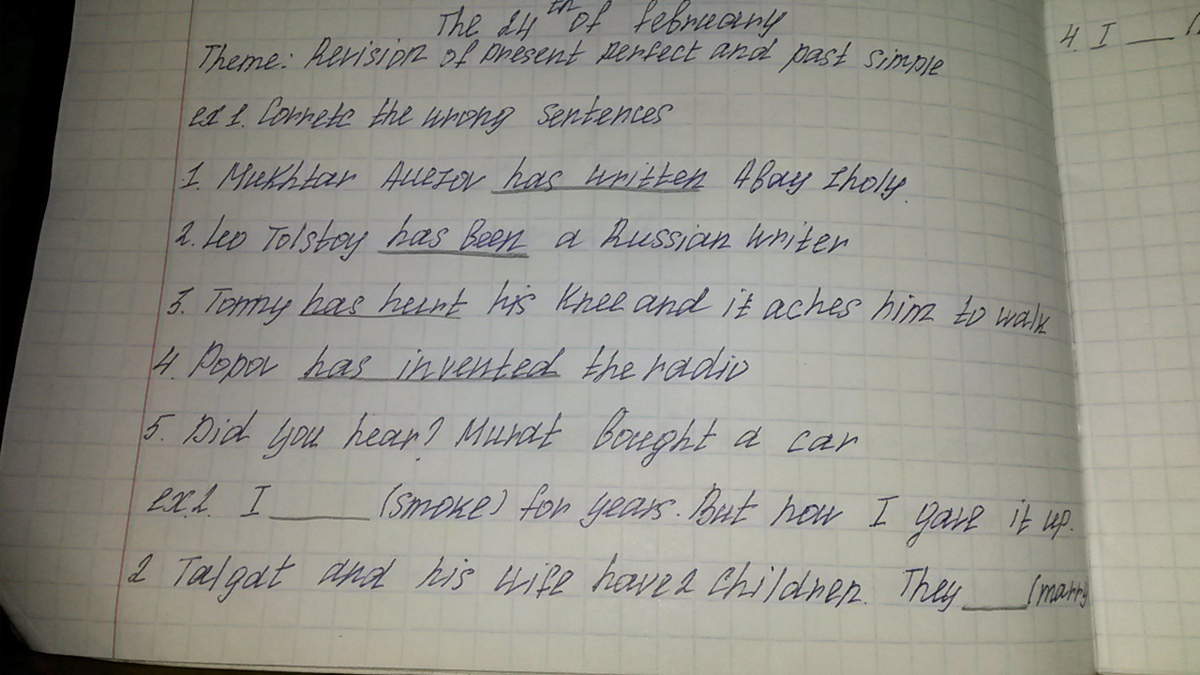 The 24th of february
Theme: Revision of present perfect and past simple
ex 1. Corretc the wrong sentences
1. Mukhtar Auezov has written Abay Zholy.
2. Leo Tolstoy has been a Russian writer
3. Tommy has hurt his knee and it aches him to walk
4. Popov has invented the radio
5. Did you hear? Murat bought a car
ex.2. I ____ (smoke) for years. But now I gave it up.
2 Talgat and his wife have 2 children. They ___ (marry
4. I ___